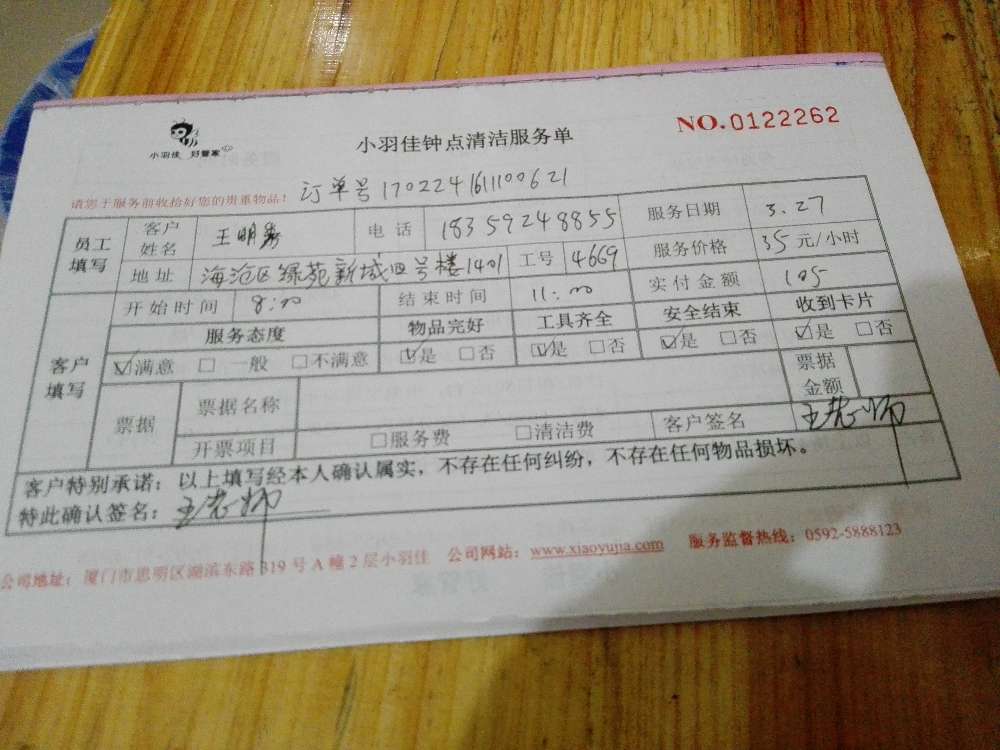 小羽佳 好管家
小羽佳钟点清洁服务单
NO.0122262
请您于服务前收拾好您的贵重物品!
订单号170224161100621
员工填写 客户姓名 王明 电话 18359248855 服务日期 3.27
地址 海沧区绿苑新城四号楼1401 工号 4669 服务价格 35元/小时
客户填写 开始时间 8:00 结束时间 11:00 实付金额 105
服务态度 物品完好 工具齐全 安全结束 收到卡片
☑满意 □一般 □不满意 ☑是 □否 ☑是 □否 ☑是 □否 ☑是 □否
票据 票据名称 票据金额
开票项目 □服务费 □清洁费 客户签名 王老师
客户特别承诺:以上填写经本人确认属实,不存在任何纠纷,不存在任何物品损坏。
特此确认签名:王老师
公司地址:厦门市思明区湖滨东路319号A幢2层小羽佳 公司网站:www.xiaoyujia.com 服务监督热线:0592-5888123